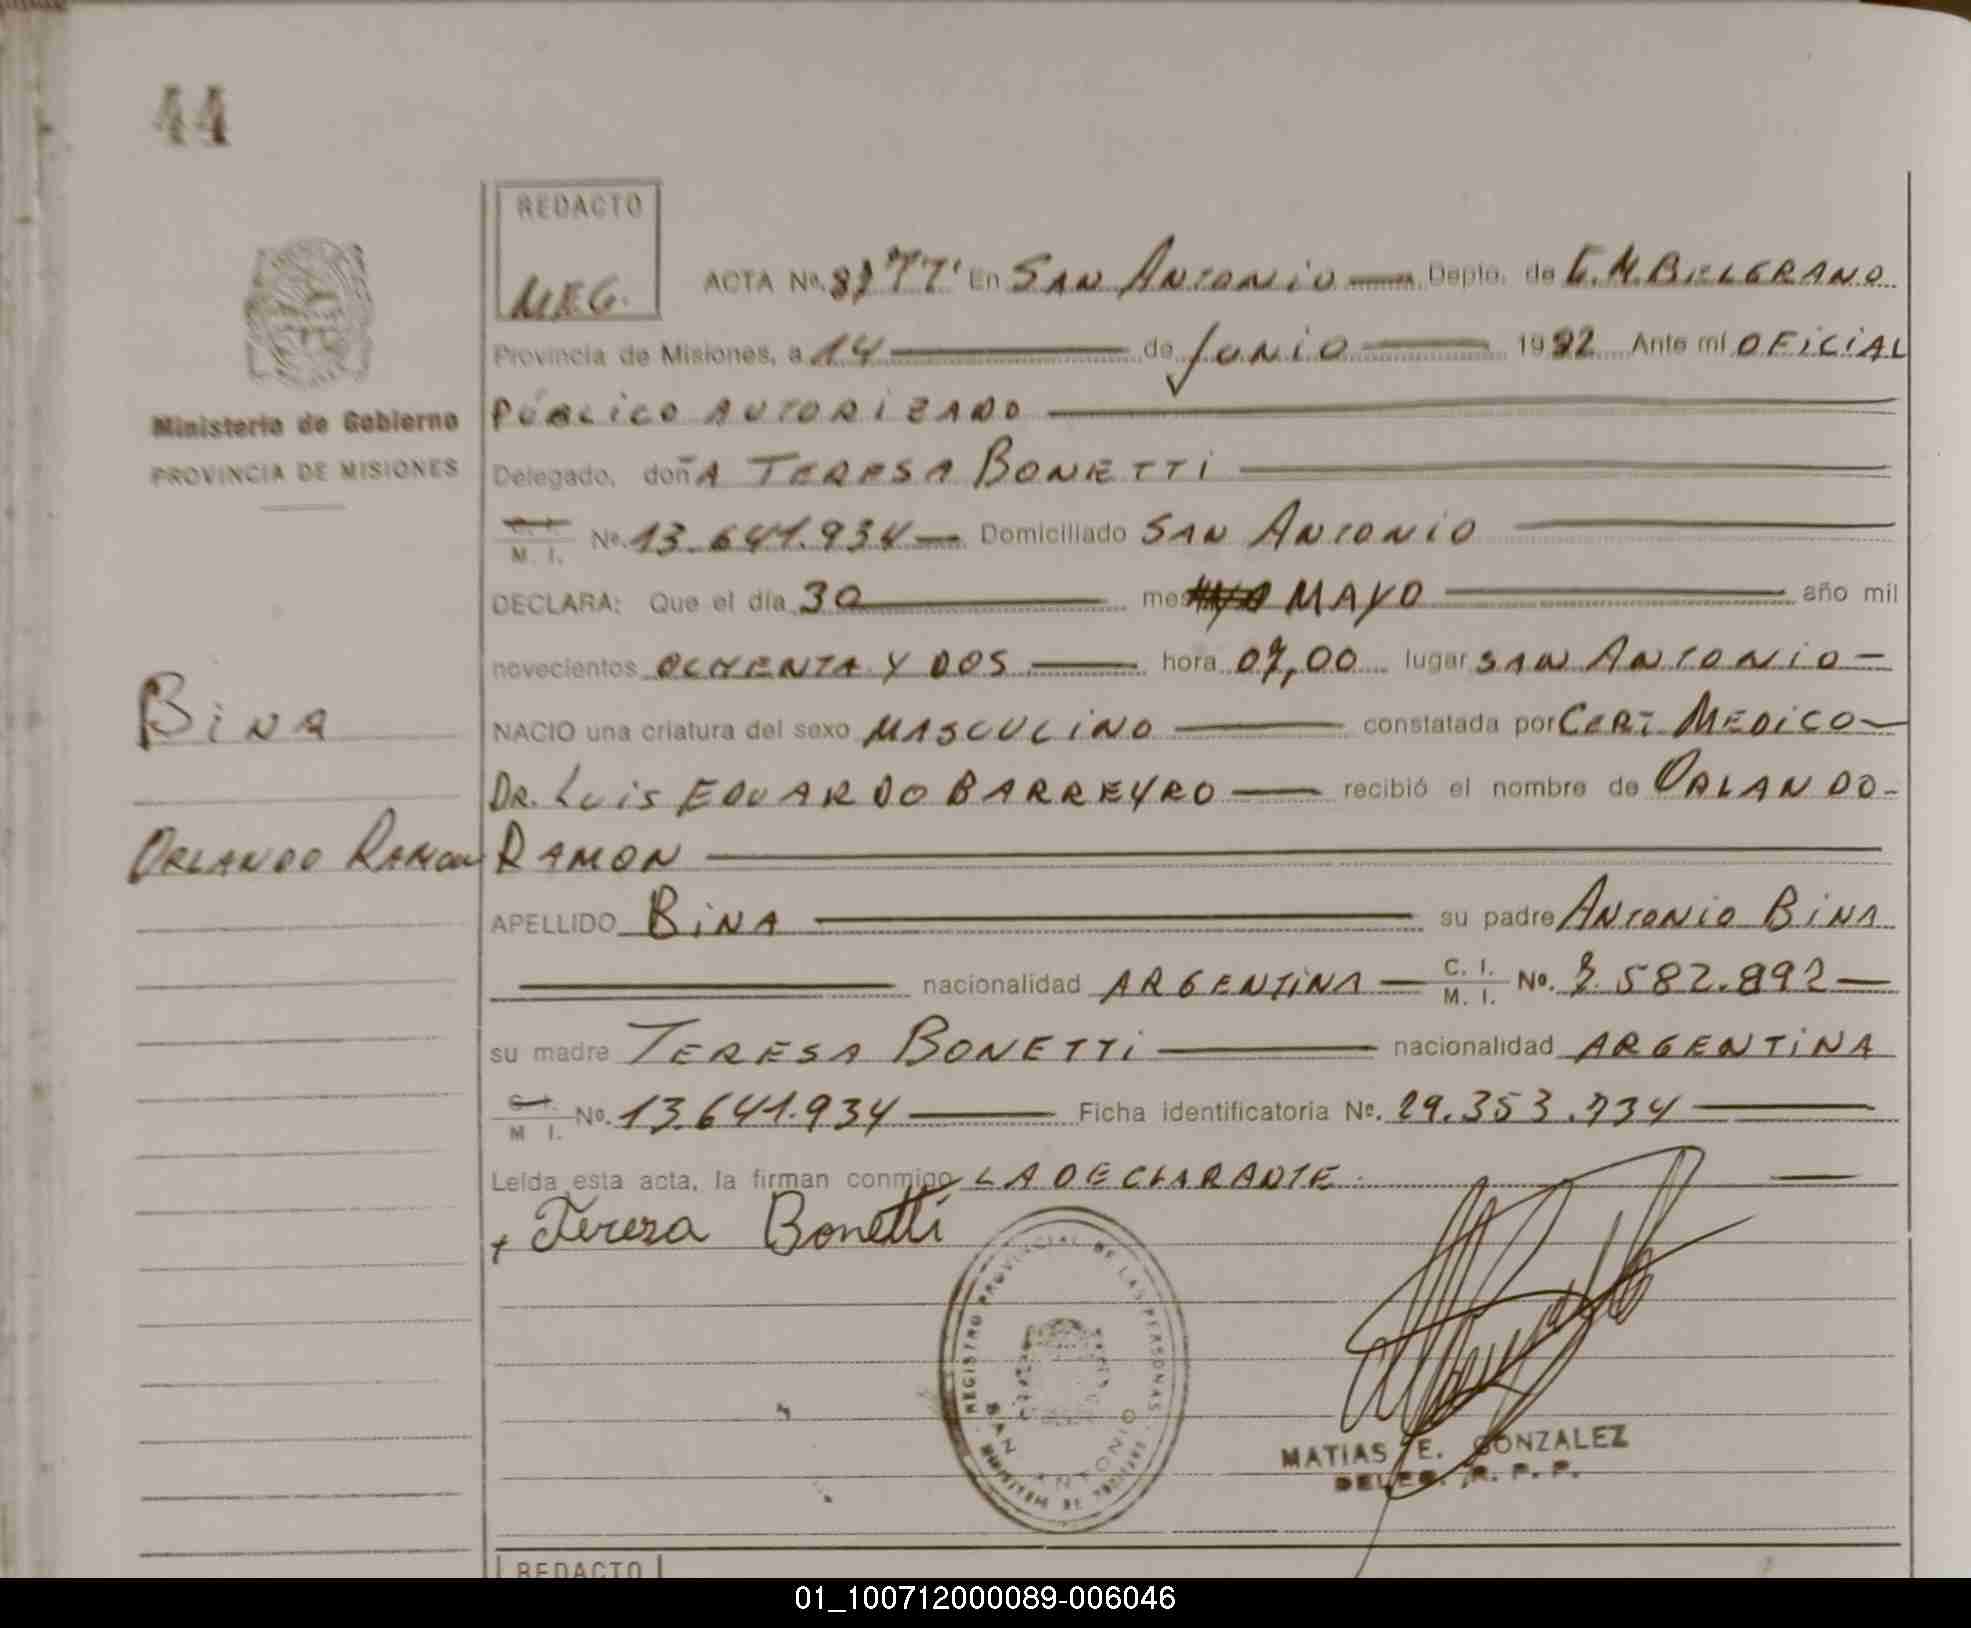 44
REDACTO
M.E.G.
ACTA Nº. En SAN ANTONIO Depto. de G.M. BELGRANO
Provincia de Misiones, a 14 de JUNIO 1982 Ante mí OFICIAL
PÚBLICO AUTORIZADO
Delegado, doñA TERESA BONETTI
C. I. M. I. Nº. 13.641.934 Domiciliado SAN ANTONIO
DECLARA: Que el día 30 mes MAYO año mil
novecientos OCHENTA Y DOS hora 07,00 lugar SAN ANTONIO
NACIO una criatura del sexo MASCULINO constatada por CERT MEDICO
DR. LUIS EDUARDO BARREYRO recibió el nombre de ORLANDO
RAMON
APELLIDO BINA su padre ANTONIO BINA
nacionalidad ARGENTINA C. I. M. I. Nº. 582.892
su madre TERESA BONETTI nacionalidad ARGENTINA
C. I. M. I. Nº. 13.641.934 Ficha identificatoria Nº. 29.353.734
Leída esta acta, la firman conmigo LA DECLARANTE
Teresa Bonetti
Ministerio de Gobierno
PROVINCIA DE MISIONES
BINA
ORLANDO RAMON
REGISTRO PROVINCIAL DE LAS PERSONAS
SAN ANTONIO
MATIAS E. GONZALEZ
DELEG. R. P. P.
REDACTO
01_100712000089-006046